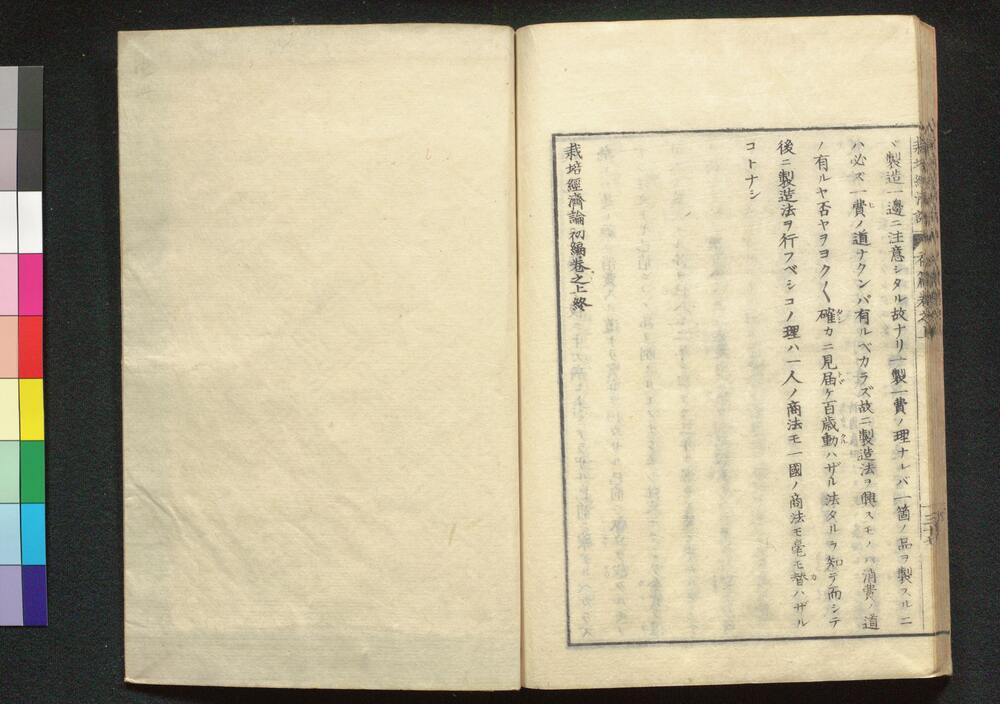 ヾ製造一邊ニ注意シタル故ナリ一製一費ノ理ナルバ一箇ノ品ヲ製スルニ
ハ必ズ一費ノ道ナクンバ有ルベカラズ故ニ製造法ヲ興スモノハ消費ノ道
ノ有ルヤ否ヤヲヨク〱確カニ見届ケ百歳動ハザル法タルヲ知テ而シテ
後ニ製造法ヲ行フベシコノ理ハ一人ノ商法モ一國ノ商法モ毫モ替ハザル
コトナシ
栽培經濟論初編巻之上終